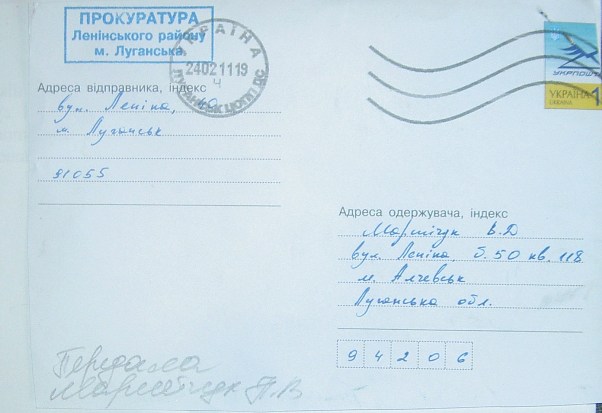 ПРОКУРАТУРА
Ленінського району
м. Луганська
УКРАЇНА
24021119
Ч
ЛУГАНСЬК ЦОПП ДС
УКРПОШТА
УКРАЇНА 1
Адреса відправника, індекс
вул. Леніна, 40
м. Луганськ
91055
Адреса одержувача, індекс
Марійчук В.Д
вул. Леніна, б. 50 кв. 118
м. Алчевськ
Луганська обл.
94206
Передала
Марийчук П.В